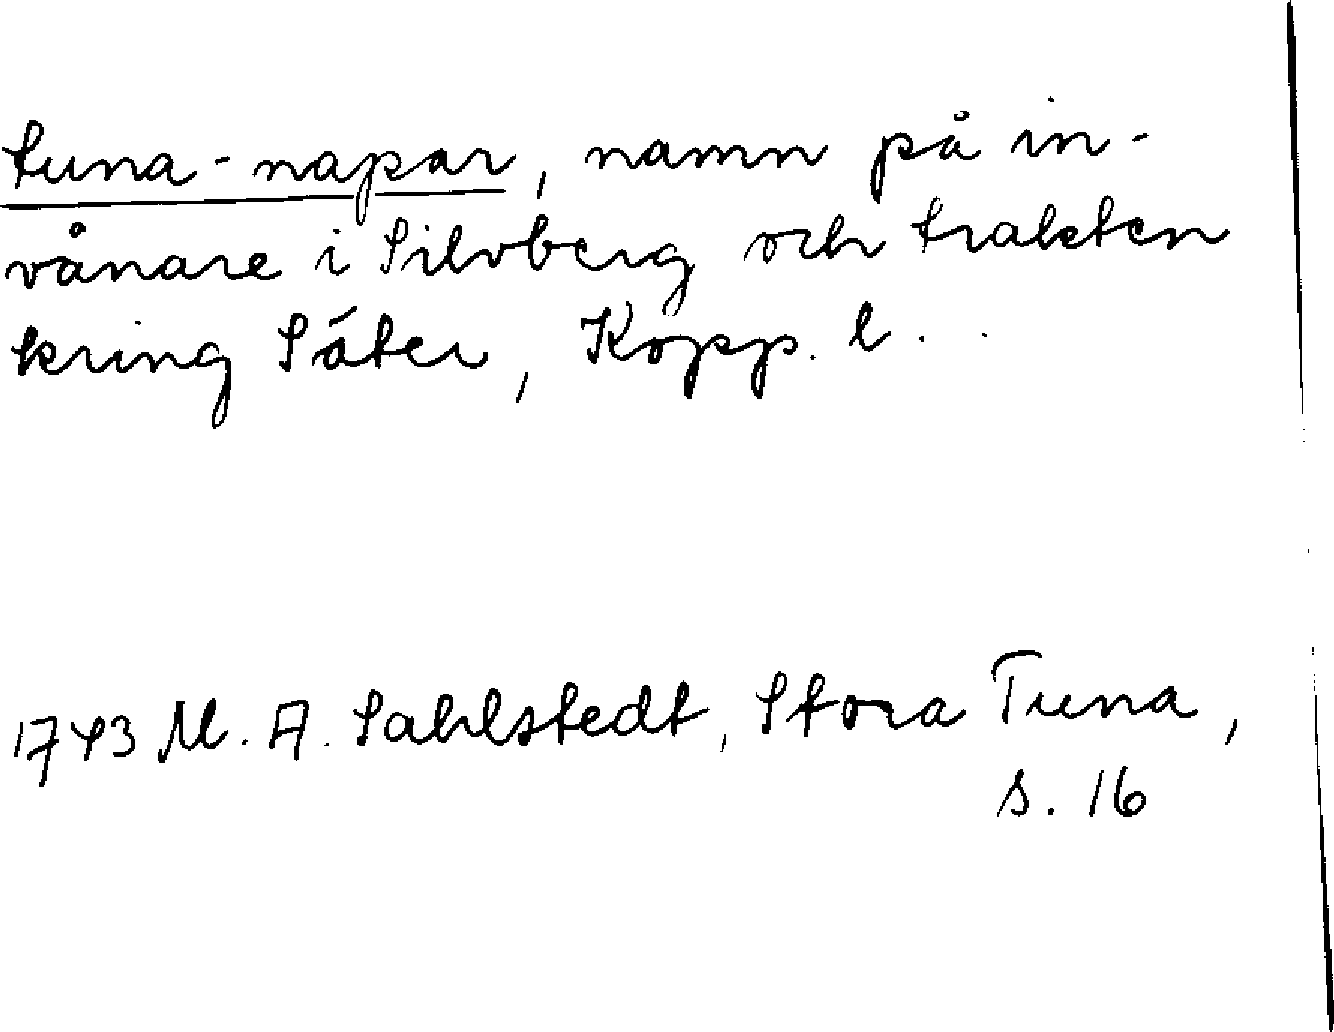 tuna-napar, namn på in-
vånare i Silvberg och trakten
kring Säter, Kopp. l.
1743 M. A. Sahlstedt, Stora Tuna,
s. 16